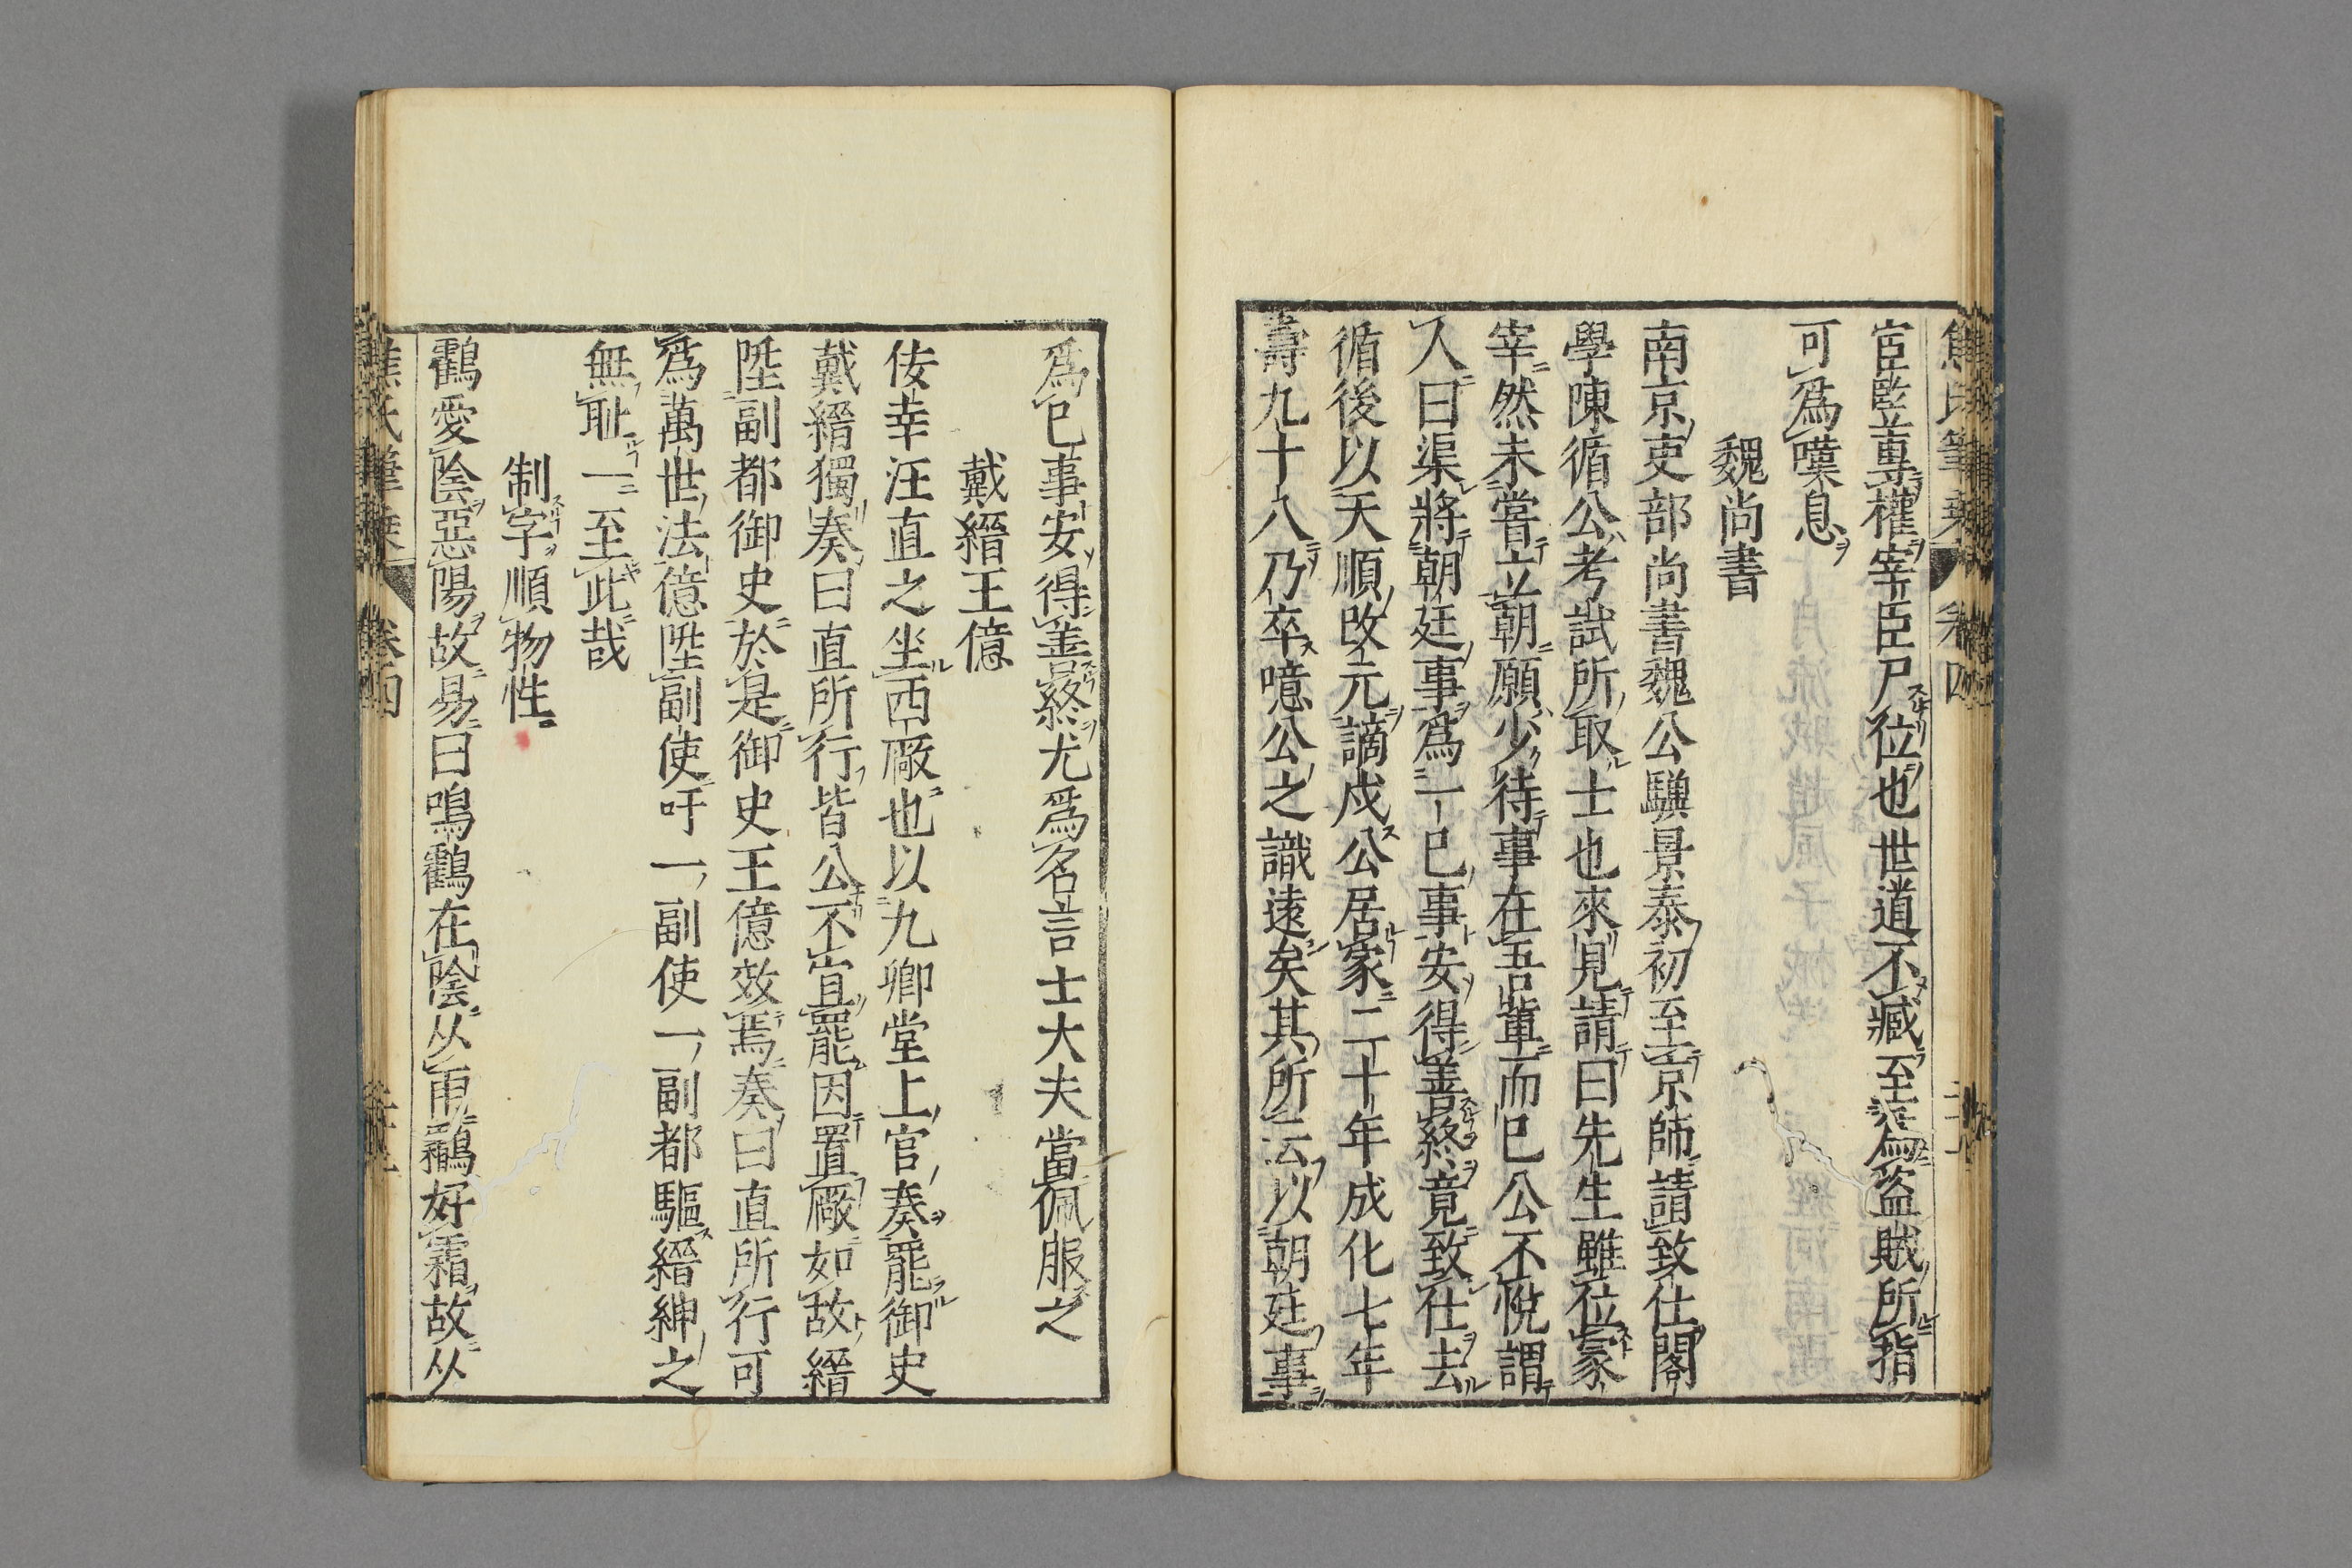 宦監專權宰臣尸位也世道不臧至為盜賊所指
可爲嘆息
魏尚書
南京吏部尚書魏公驥景泰初至京師請致仕閣
學陳循公考試所取士也來見請曰先生雖位冢
宰然未嘗立朝願少待事在吾輩而已公不悅謂
人曰渠將朝廷事爲一己事安得善終竟致仕去
循後以天順改元謫戍公居家二十年成化七年
壽九十八乃卒噫公之識遠矣其所云以朝廷事
爲己事安得善終尤爲名言士大夫當佩服之
戴縉王億
佞幸汪直之坐西廠也以九卿堂上官奏罷御史
戴縉獨奏曰直所行皆公不宜罷因置廠如故縉
陞副都御史於是御史王億效焉奏曰直所行可
爲萬世法億陞副使吁一副使一副都驅縉紳之
無耻一至此哉
制字順物性
鸛愛陰惡陽故易曰鳴鸛在陰从雨鸛好霜故从
焦氏筆乘 卷四